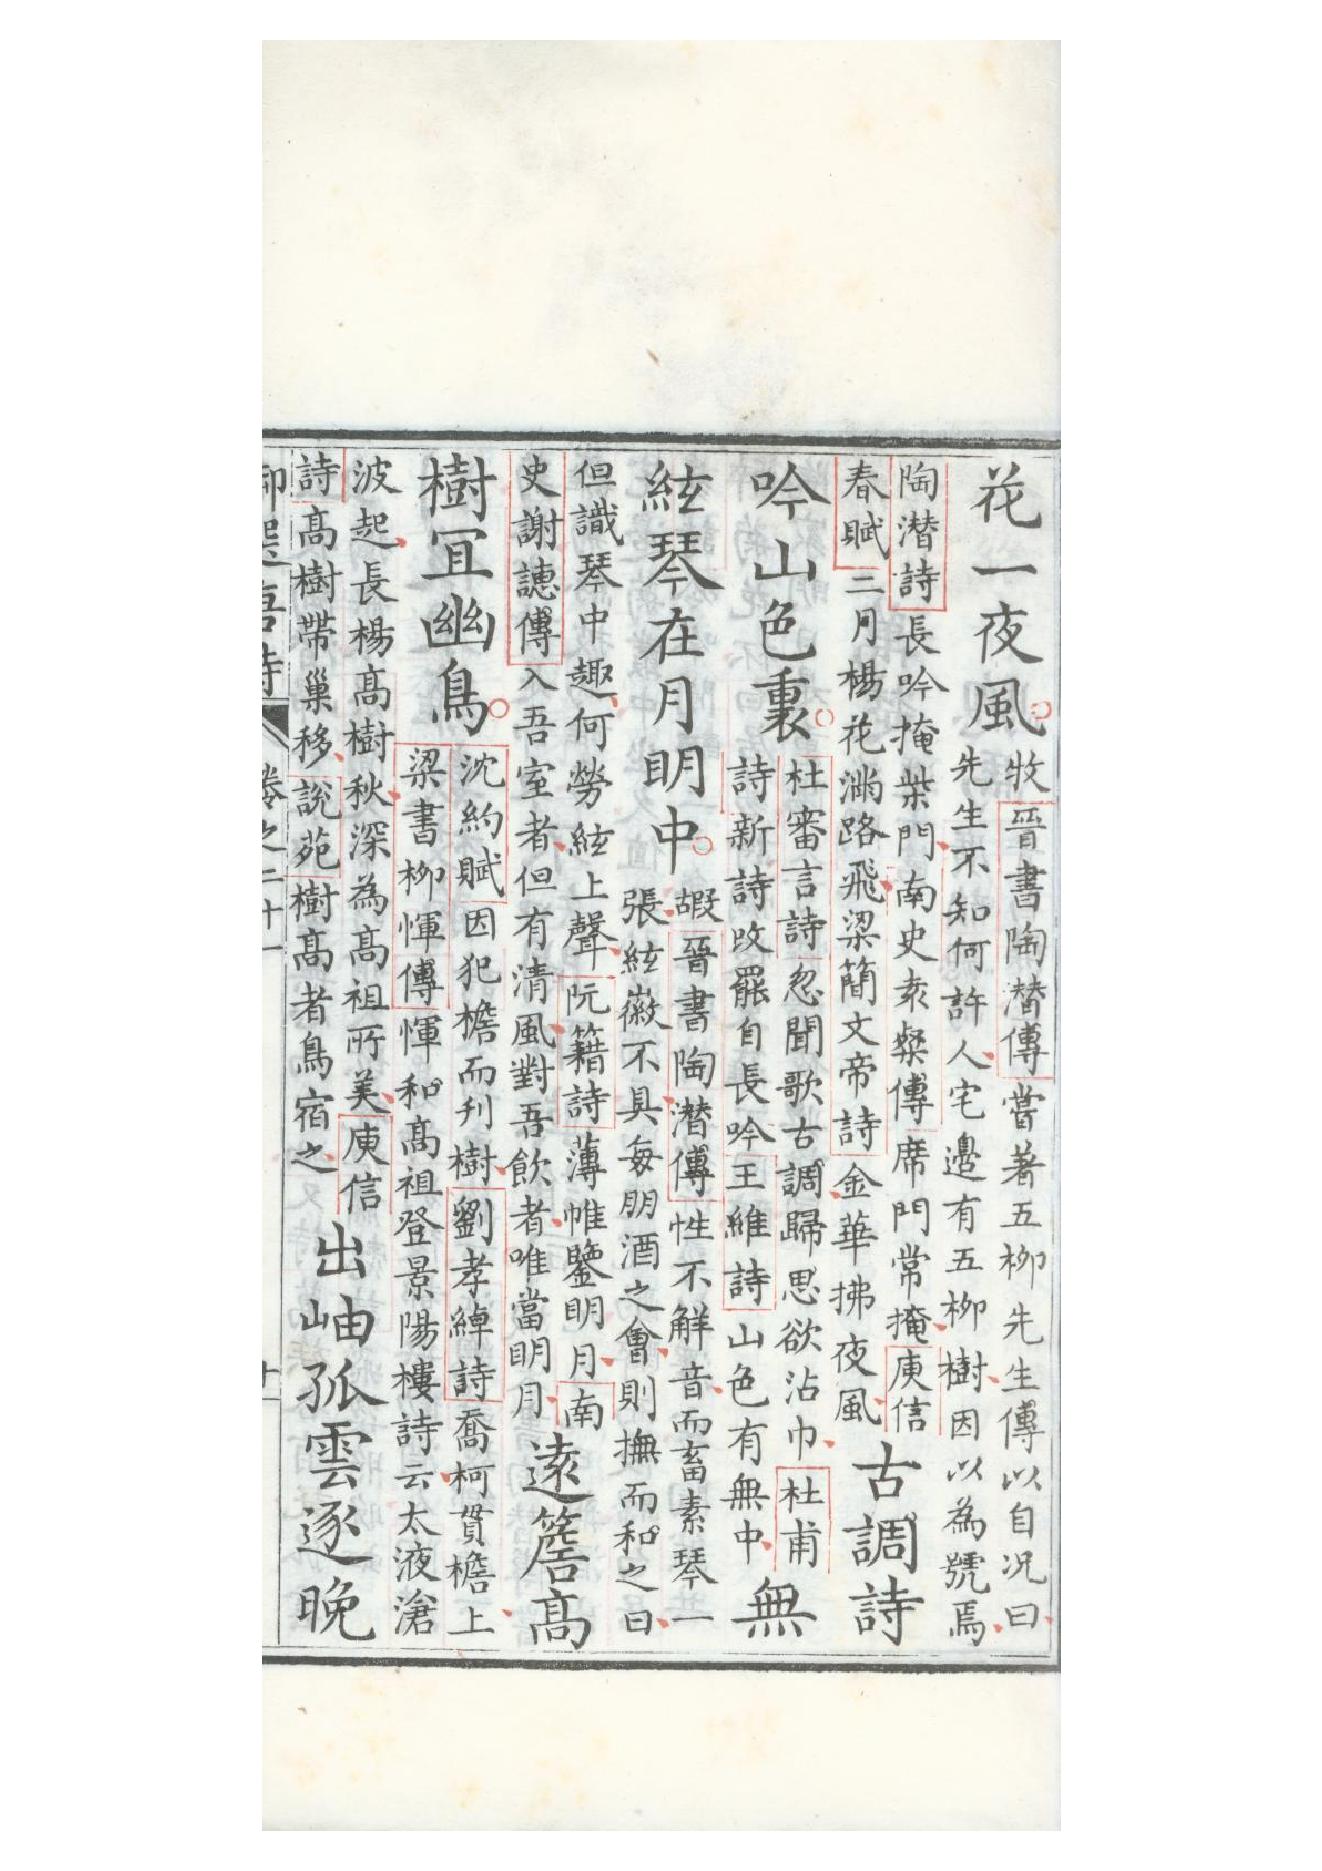 花一夜風
牧晉書陶潛傳嘗著五柳先生傳以自況曰
先生不知何許人宅邊有五柳樹因以為號焉
陶潛詩長吟掩柴門南史袁粲傳席門常掩庾信
春賦二月楊花滿路飛梁簡文帝詩金華拂夜風
古調詩
吟山色裏
杜審言詩忽聞歌古調歸思欲沾巾杜甫
詩新詩改罷自長吟王維詩山色有無中
無
絃琴在月明中
嘏晉書陶潛傳性不解音而畜素琴一
張絃徽不具每朋酒之會則撫而和之曰
但識琴中趣何勞絃上聲阮籍詩薄帷鑒明月南
史謝譓傳入吾室者但有清風對吾飲者唯當明月
遠簷高
樹宜幽鳥
沈約賦因犯檐而刋樹劉孝綽詩喬柯貫檐上
梁書柳惲傳惲和高祖登景陽樓詩云太液滄
波起長楊高樹秋深為高祖所美庾信
詩高樹帶巢移說苑樹高者鳥宿之
出岫孤雲逐晚
御選唐詩 卷之二十一